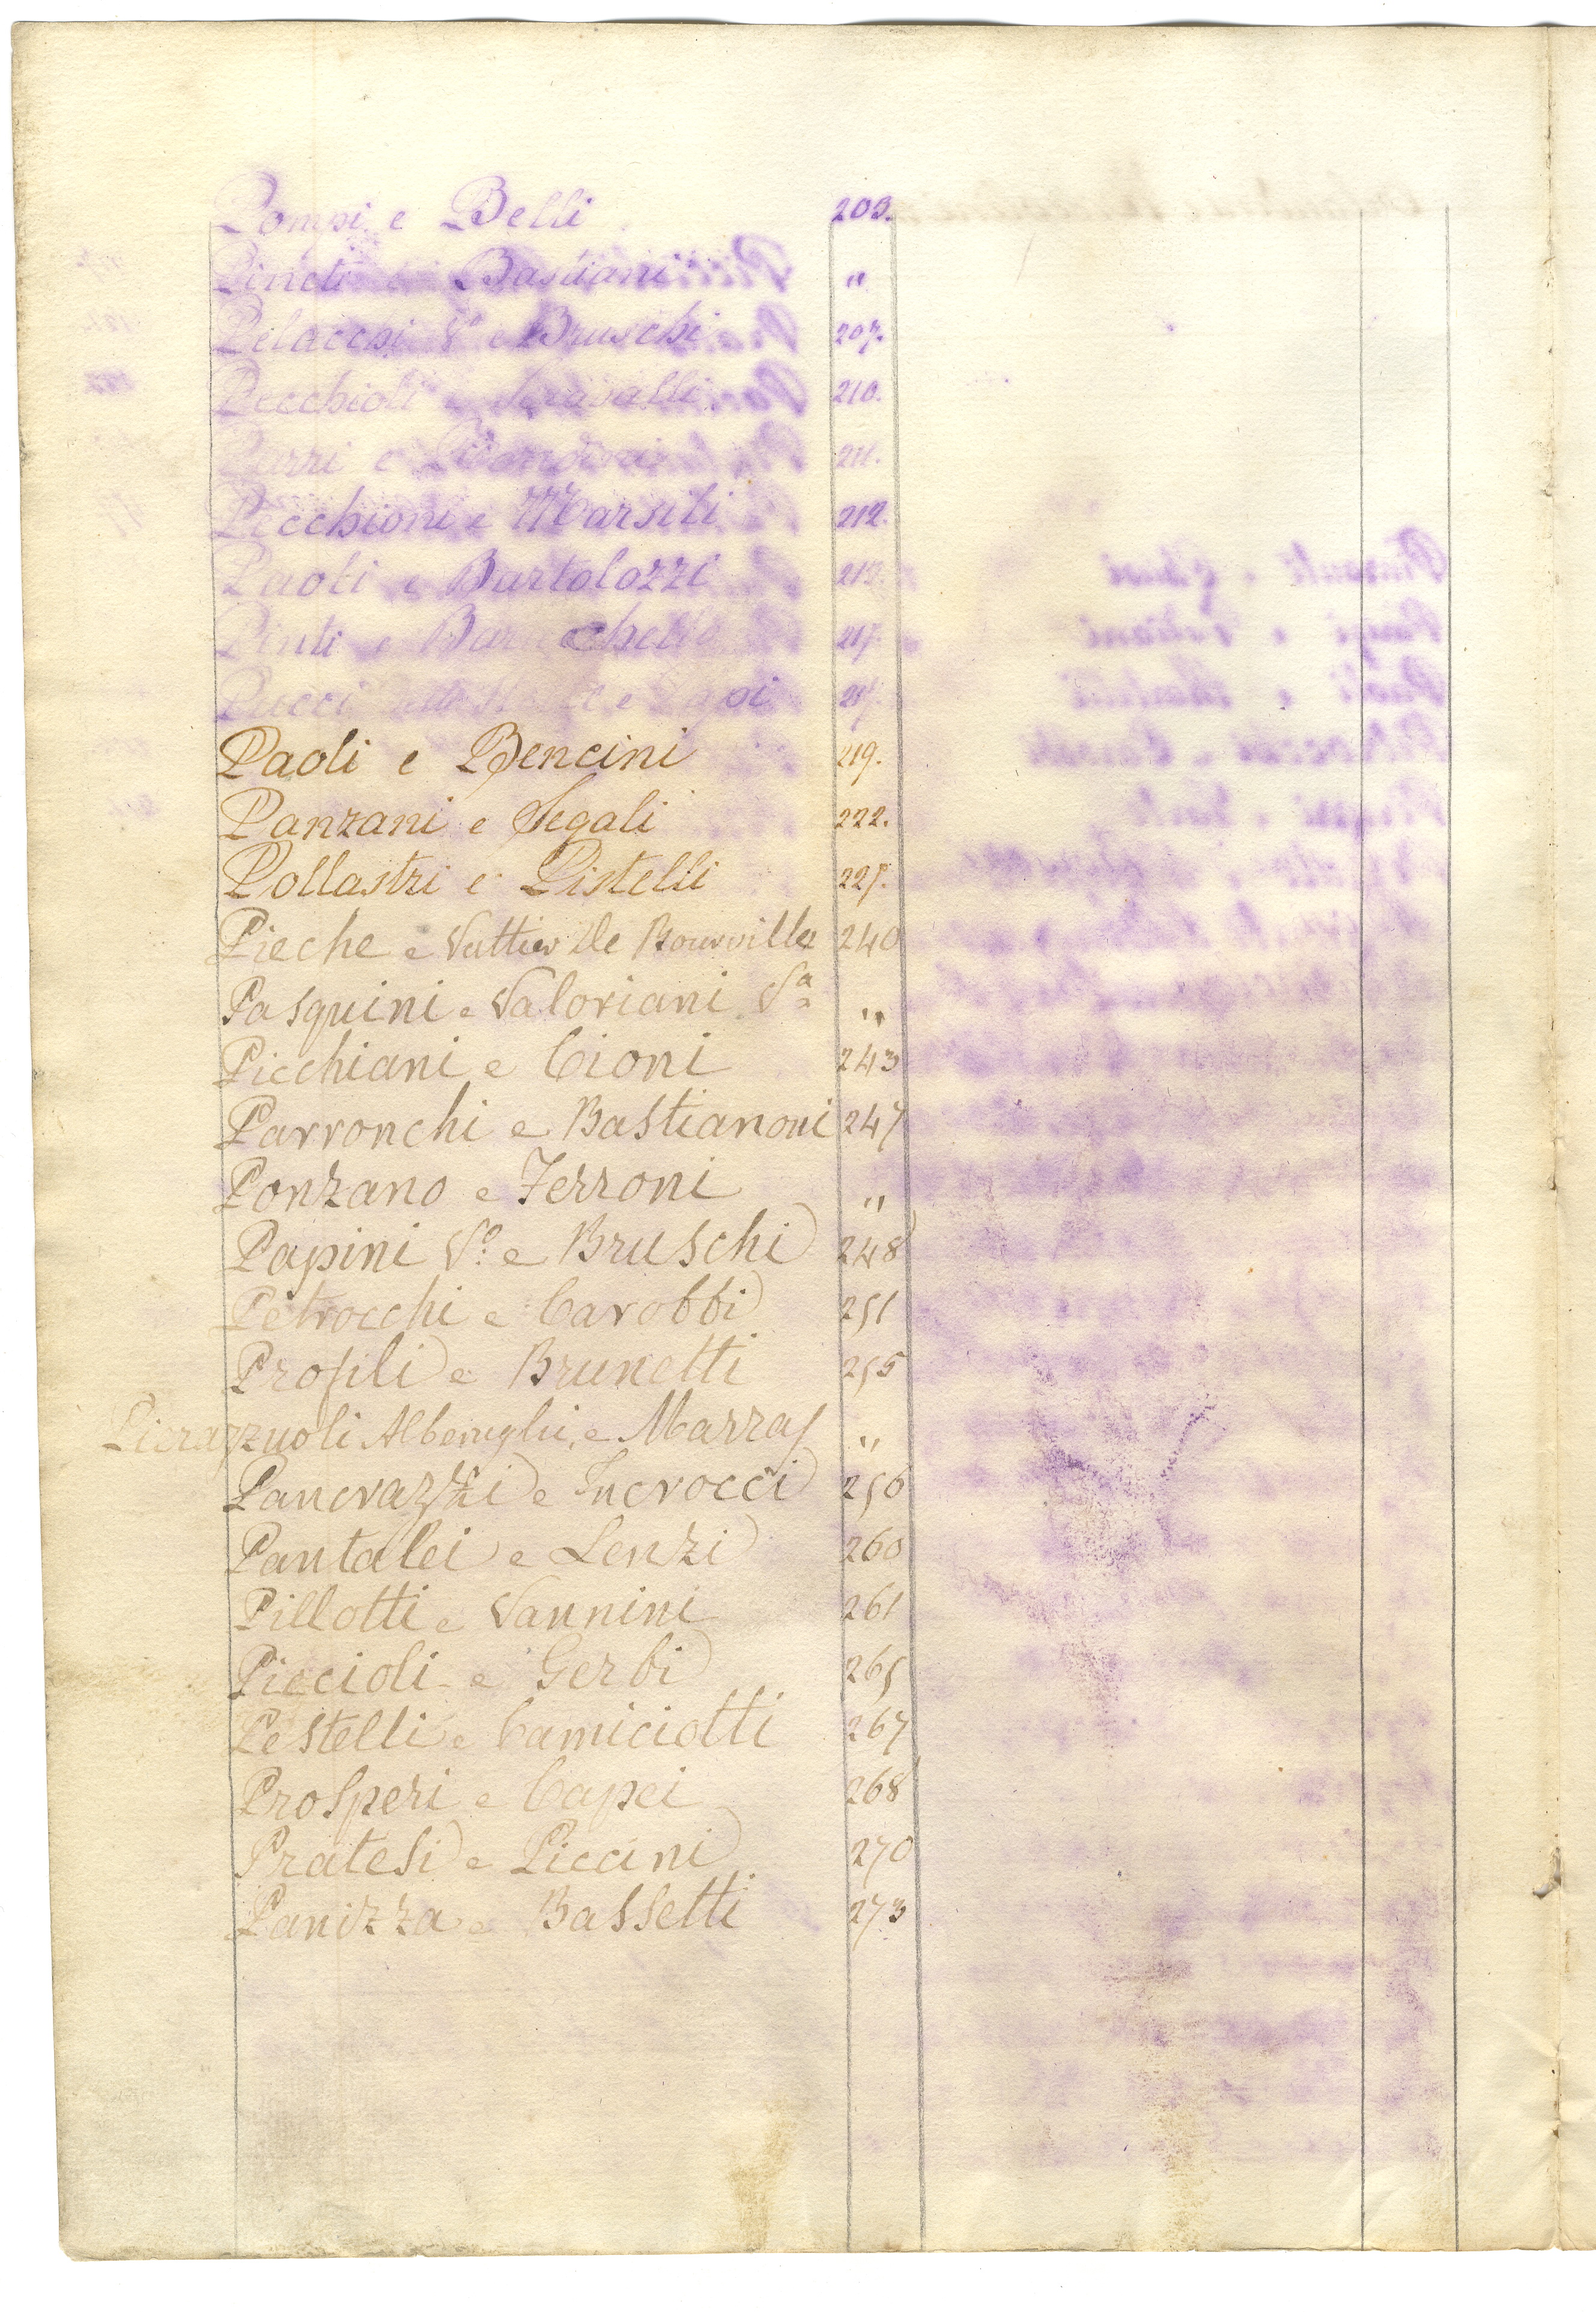 Pompi e Belli 203.
Pineti e Bastiani "
Pelacchi Vo e Bruschi 207.
Pecchioli e 210.
Parri e 211.
Pecchioni e Marsili 212.
Paoli e Bartolozzi 213.
Pinti e 217.
Pucci e Papi 217.
Paoli e Bencini 219.
Panzani e Segali 222.
Pollastri e Pistelli 227.
Pieche e Vattier De Bourville 240
Pasquini e Valoriani Va "
Picchiani e Cioni 243
Parronchi e Bastianoni 247
Ponzano e Ferroni "
Papini Vo. e Bruschi 248
Petrocchi e Carobbi 251
Profili e Brunetti 255
Pierazzuoli Alberighi, e Marras "
Pancrazzi e Incrocci 256
Pantalei e Lenzi 260
Pillotti e Vannini 261
Piccioli e Gerbi 265
Pestelli e Camiciotti 267
Prosperi e Capei 268
Pratesi e Piccini 270
Panizza e Bassetti 273